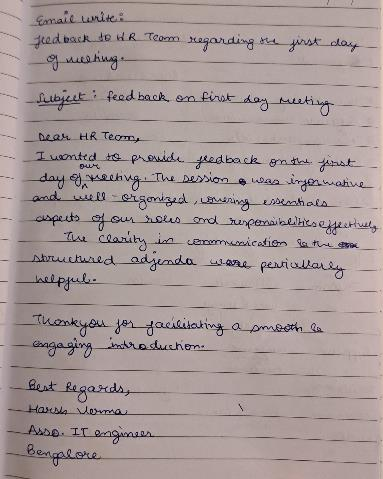 Email write:
feedback to HR Team regarding the first day
of meeting.
Subject: feedback on first day meeting
Dear HR Team,
I wanted to provide feedback on the first
day of our meeting. The session was informative
and well-organized, covering essentials
aspects of our roles and responsiblities effectively
The clarity in communication & the
structured adjenda were perticularly
helpful.
Thankyou for facilitating a smooth &
engaging introduction.
Best Regards,
Harsh Verma
Asso. IT engineer
Bengalore